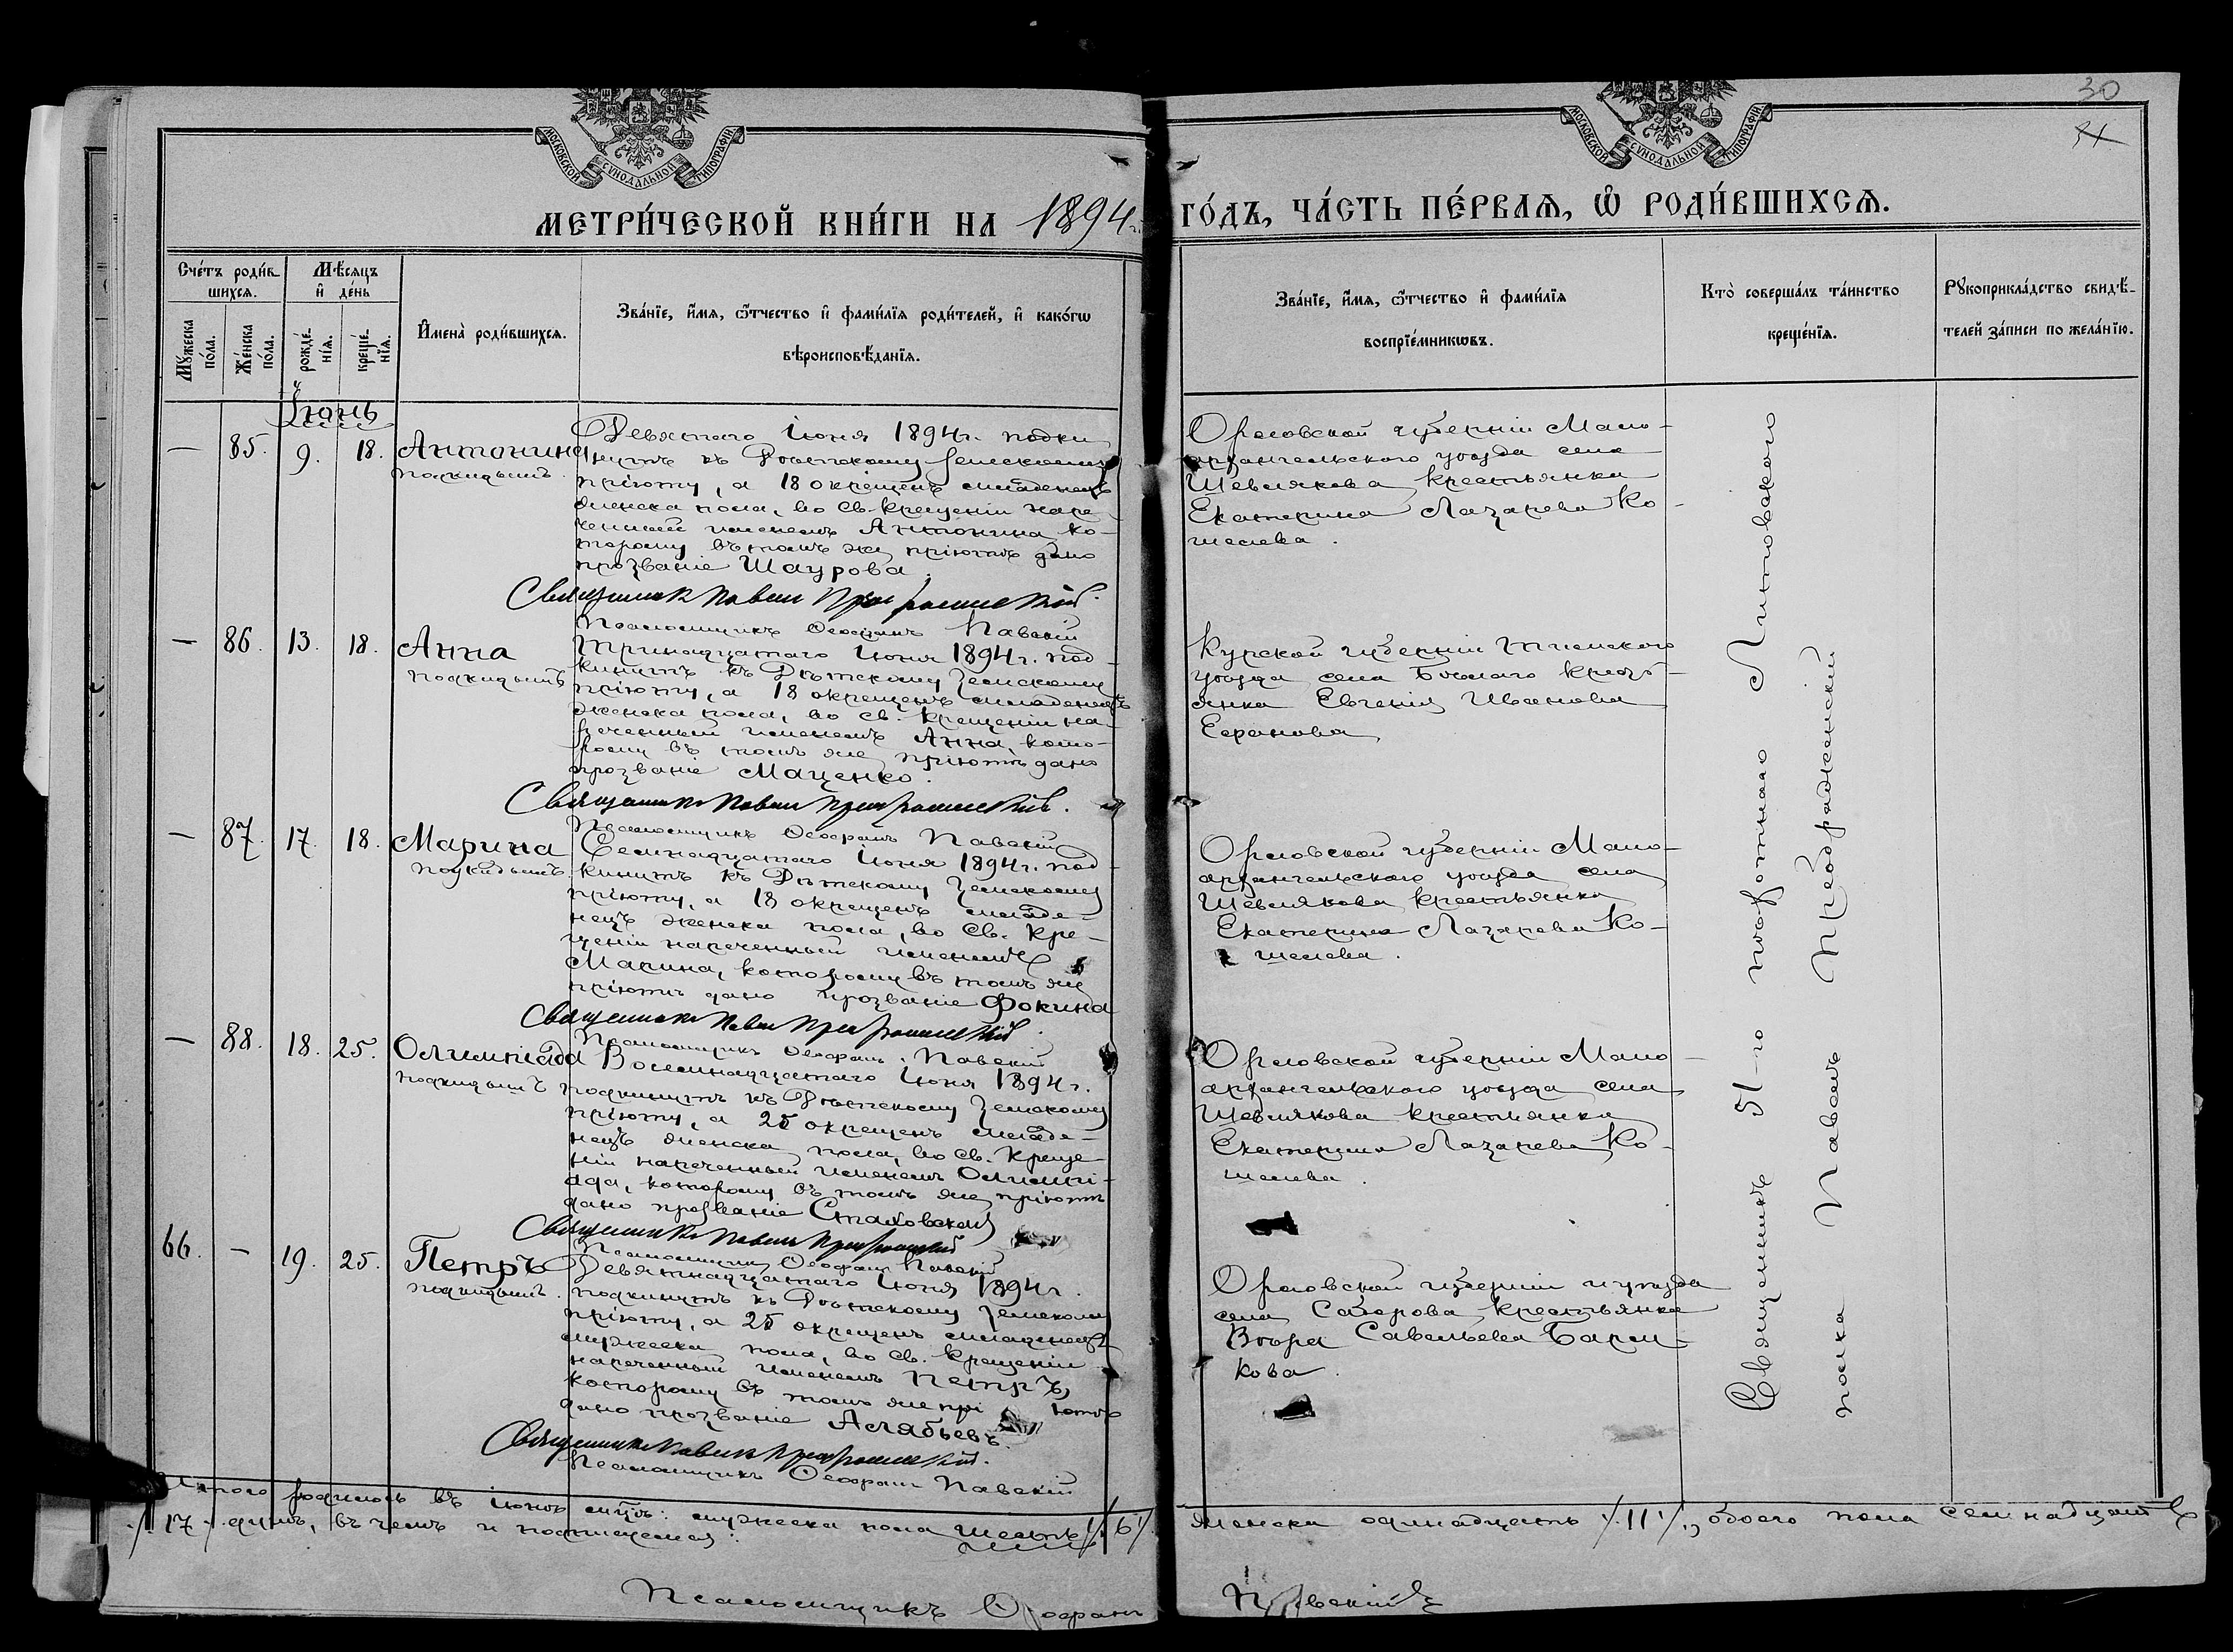 30
МОСКОВСКОЙ СѴНОДАЛЬНОЙ ТИПОГРАФІИ
МОСКОВСКОЙ СѴНОДАЛЬНОЙ ТИПОГРАФІИ
МЕТРИ́ЧЕСКОЙ КНИ́ГИ НА 1894 г. ГО́ДЪ, ЧА́СТЬ ПЕ́РВАѦ, Ѽ РОДИ́ВШИХСѦ.
Сче́тъ роди́вшихсѧ.
Мꙋ́жеска по́ла.
Же́нска по́ла.
Мѣ́сѧцъ и҆ де́нь
рожде́нїѧ.
креще́нїѧ.
И҆мена̀ роди́вшихсѧ.
Зва́нїе, и҆́мѧ, ѿ́тчество и҆ фами́лїѧ роди́телей, и҆ како́гѡ
вѣроисповѣ́данїѧ.
Зва́нїе, и҆́мѧ, ѿ́тчество и҆ фами́лїѧ
воспрїе́мникѡвъ.
Кто̀ соверша́лъ та́инство
креще́нїѧ.
Рꙋкоприкла́дство свидѣ́-
телей за́писи по жела́нїю.
Іюнь
— 85. 9. 18. Антонина
подкидышъ
Девятаго Іюня 1894 г. подки
нутъ къ Дѣтскому Земскому
пріюту, а 18 окрещенъ младенецъ
женска пола, во Св. Крещеніи наре-
ченный именемъ Антонина, ко-
торому въ томъ же пріютѣ дано
прозваніе Шаурова.
Священникъ Павелъ Преображенскій.
Псаломщикъ Ѳеофанъ Павскій
Орловской губерніи Мало-
архангельскаго уѣзда села
Шевлякова крестьянка
Екатерина Лазарева Ко-
шелева.
— 86. 13. 18. Анна
подкидышъ
Тринадцатаго Іюня 1894 г. под-
кинутъ къ Дѣтскому Земскому
пріюту, а 18 окрещенъ младенецъ
женска пола, во Св. Крещеніи на-
реченный именемъ Анна, кото-
рому въ томъ же пріютѣ дано
прозваніе Маценко.
Священникъ Павелъ Преображенскій.
Псаломщикъ Ѳеофанъ Павскій
Курской губерніи Тимскаго
уѣзда села Бѣлаго кресть-
янка Евгенія Иванова
— 87. 17. 18. Марина
подкидышъ
Семнадцатаго Іюня 1894 г. под-
кинутъ къ Дѣтскому Земскому
пріюту, а 18 окрещенъ младе-
нецъ женска пола, во Св. Кре-
щеніи нареченный именемъ
Марина, которому въ томъ же
пріютѣ дано прозваніе Фокина
Священникъ Павелъ Преображенскій.
Псаломщикъ Ѳеофанъ Павскій
Орловской губерніи Мало-
архангельскаго уѣзда села
Шевлякова крестьянка
Екатерина Лазарева Ко-
шелева.
— 88. 18. 25. Олимпіада
подкидышъ
Восемнадцатаго Іюня 1894 г.
подкинутъ къ Дѣтскому Земскому
пріюту, а 25 окрещенъ младе-
нецъ женска пола, во Св. Креще-
ніи нареченный именемъ Олимпі-
ада, которому въ томъ же пріютѣ
дано прозваніе Стаховская
Священникъ Павелъ Преображенскій
Псаломщикъ Ѳеофанъ Павскій
Орловской губерніи Мало-
архангельскаго уѣзда села
Шевлякова крестьянка
Екатерина Лазарева Ко-
шелева.
66. — 19. 25. Петръ
подкидышъ.
Девятнадцатаго Іюня 1894 г.
подкинутъ къ Дѣтскому Земскому
пріюту, а 25 окрещенъ младенецъ
мужеска пола, во Св. Крещеніи
нареченный именемъ Петръ,
которому въ томъ же пріютѣ
дано прозваніе Алябьевъ.
Священникъ Павелъ Преображенскій.
Псаломщикъ Ѳеофанъ Павскій
Орловской губерніи и уѣзда
села Сабурова крестьянка
Вѣра Савельева
кова.
Священникъ 51-го пѣхотнаго Литовскаго
полка Павелъ Преображенскій
Итого родилось въ Іюнѣ мцѣ: мужеска пола шесть /6/ женска одинадцать /11/, обоего пола семнадцать
/17/ душъ, въ чемъ и подпишемся:
Псаломщикъ Ѳеофанъ Павскій